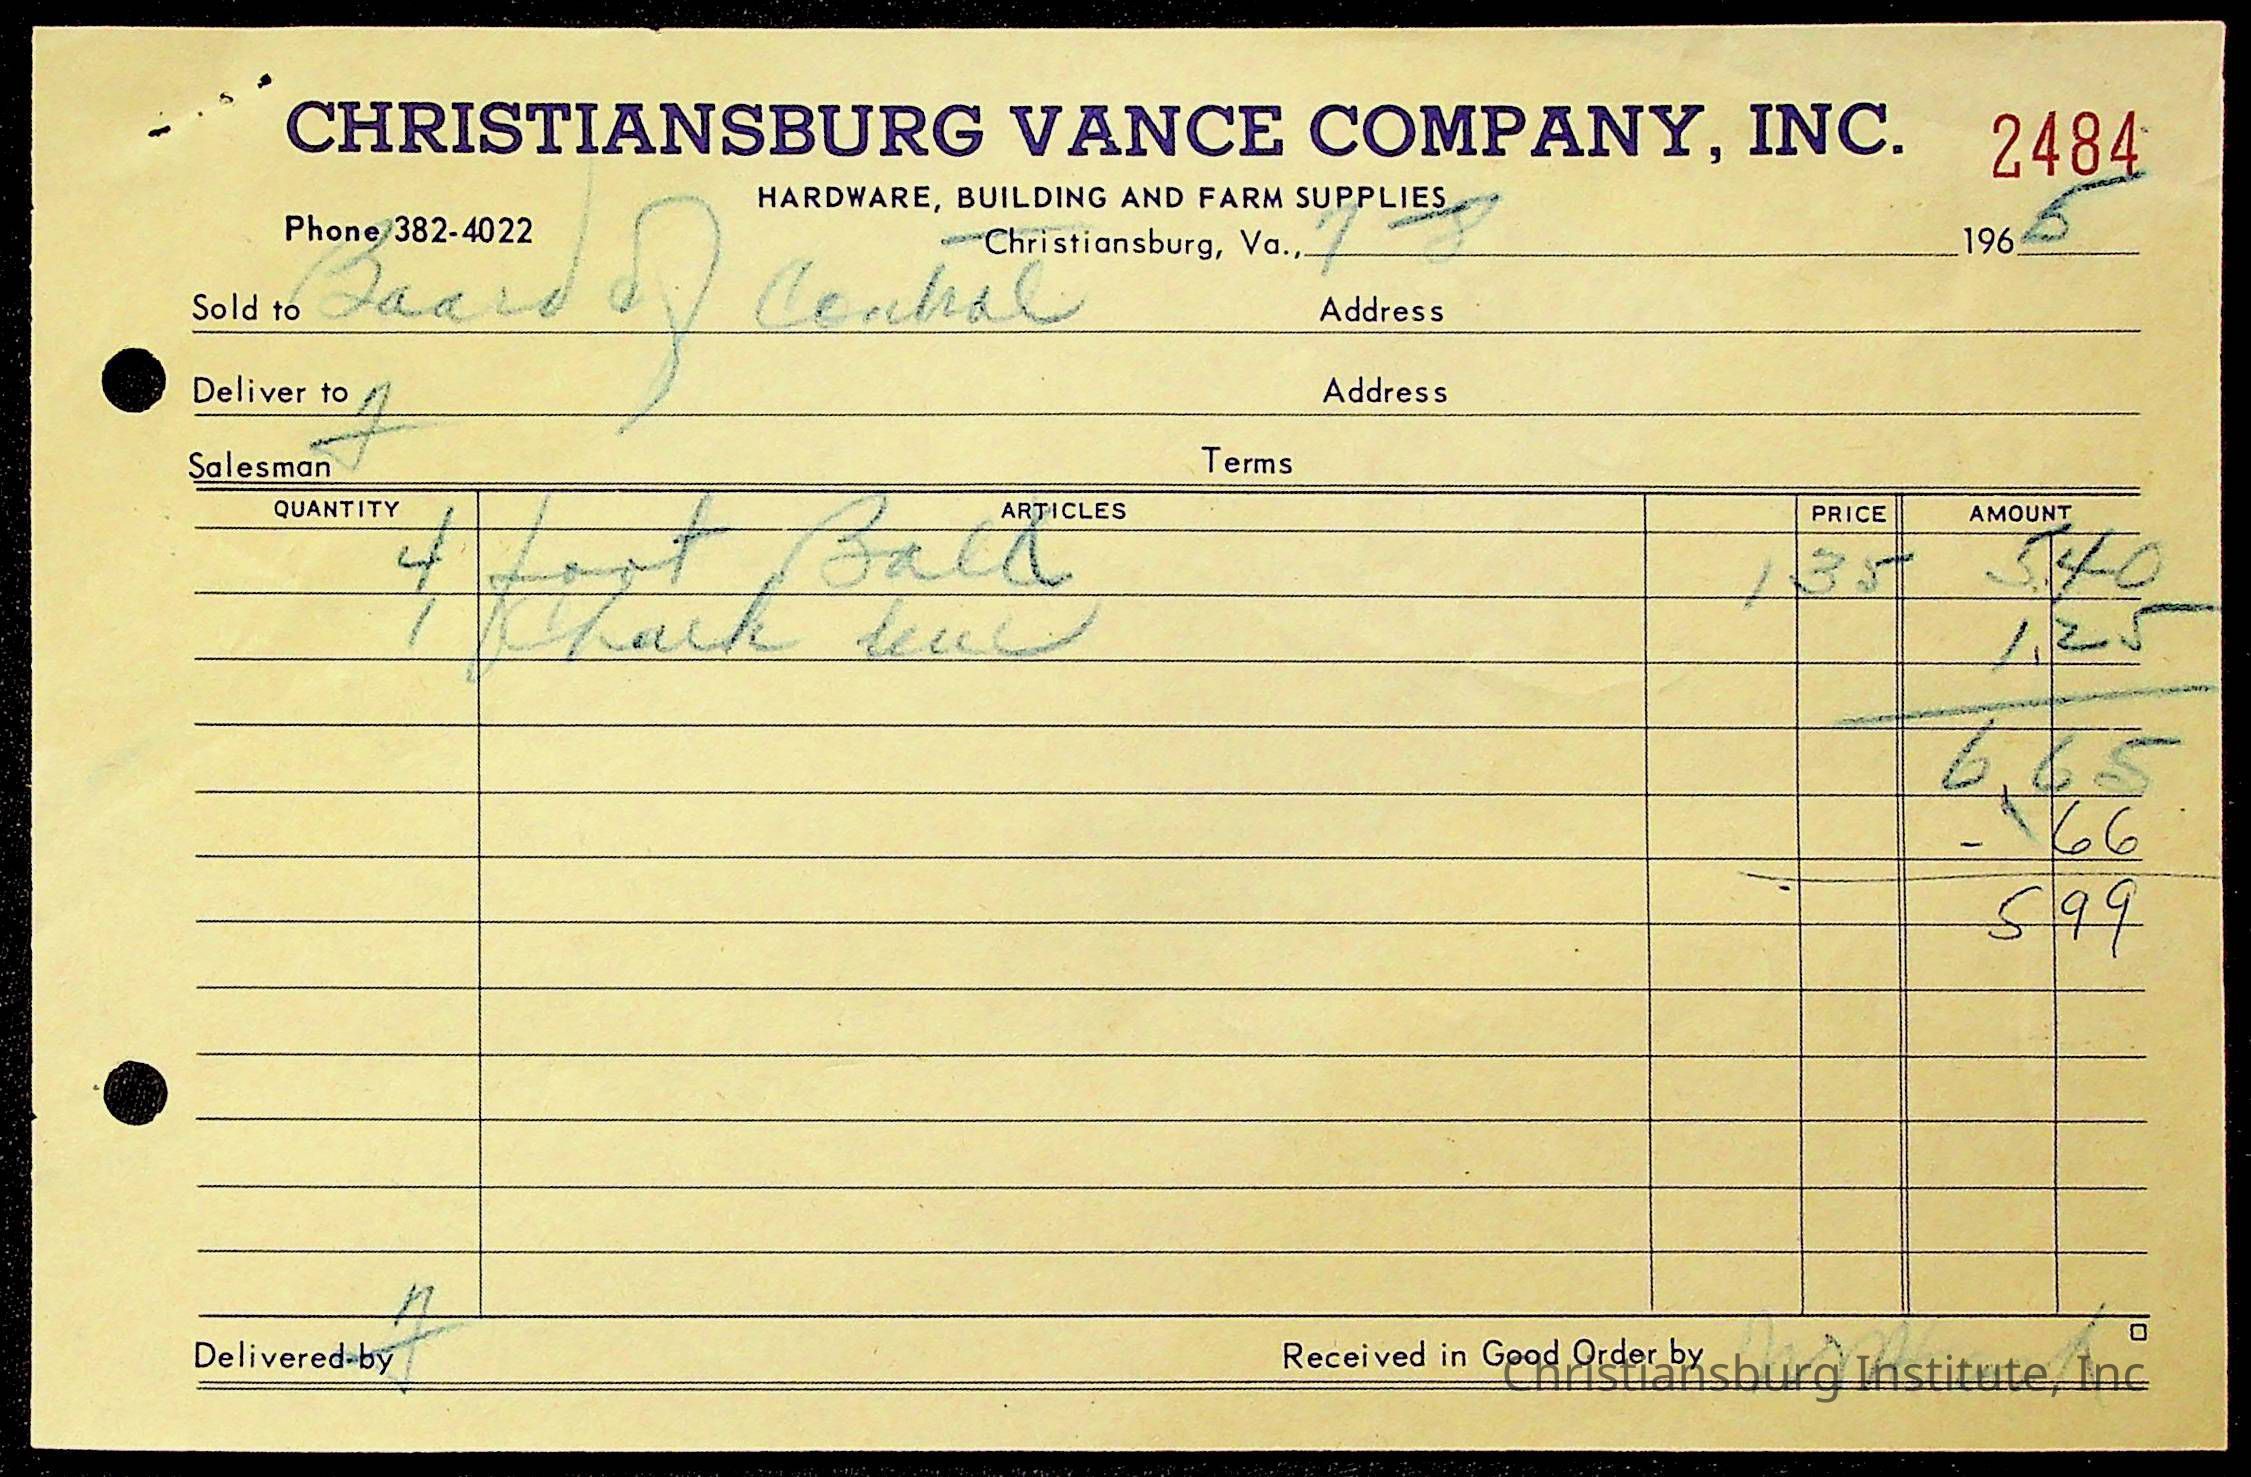 CHRISTIANSBURG VANCE COMPANY, INC. 2484
HARDWARE, BUILDING AND FARM SUPPLIES
Phone 382-4022 Christiansburg, Va., 7-8 1965
Sold to Board of Control Address
Deliver to Address
Salesman Terms
QUANTITY ARTICLES PRICE AMOUNT
4 foot 135 5.40
1 Chalk line 1.25
6.65
- 66
5 99
Delivered by Received in Good Order by
Christiansburg Institute, Inc